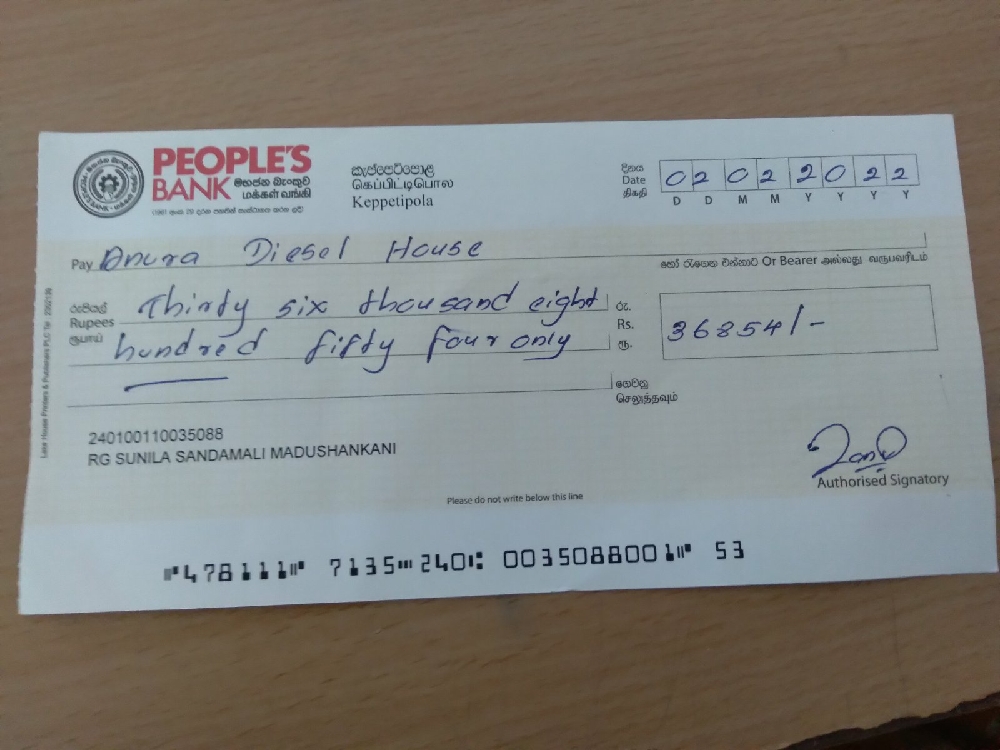 PEOPLE'S
BANK මහජන බැංකුව
மக்கள் வங்கி
කැප්පෙටිපොළ
கெப்பிட்டிபொல
Keppetipola
දිනය
Date
திகதி
0 2 0 2 2 0 2 2
D D M M Y Y Y Y
Pay Anura Diesel House
හෝ රැගෙන එන්නාට Or Bearer அல்லது வருபவரிடம்
රුපියල්
Rupees Thirty six thousand eight
ரூபாய் hundred fifty four only
රු.
Rs. 36854/-
ரூ.
ගෙවනු
செலுத்தவும்
240100110035088
RG SUNILA SANDAMALI MADUSHANKANI
Authorised Signatory
Please do not write below this line
⑈478111⑈ 7135⑉240⑆ 0035088001⑈ 53